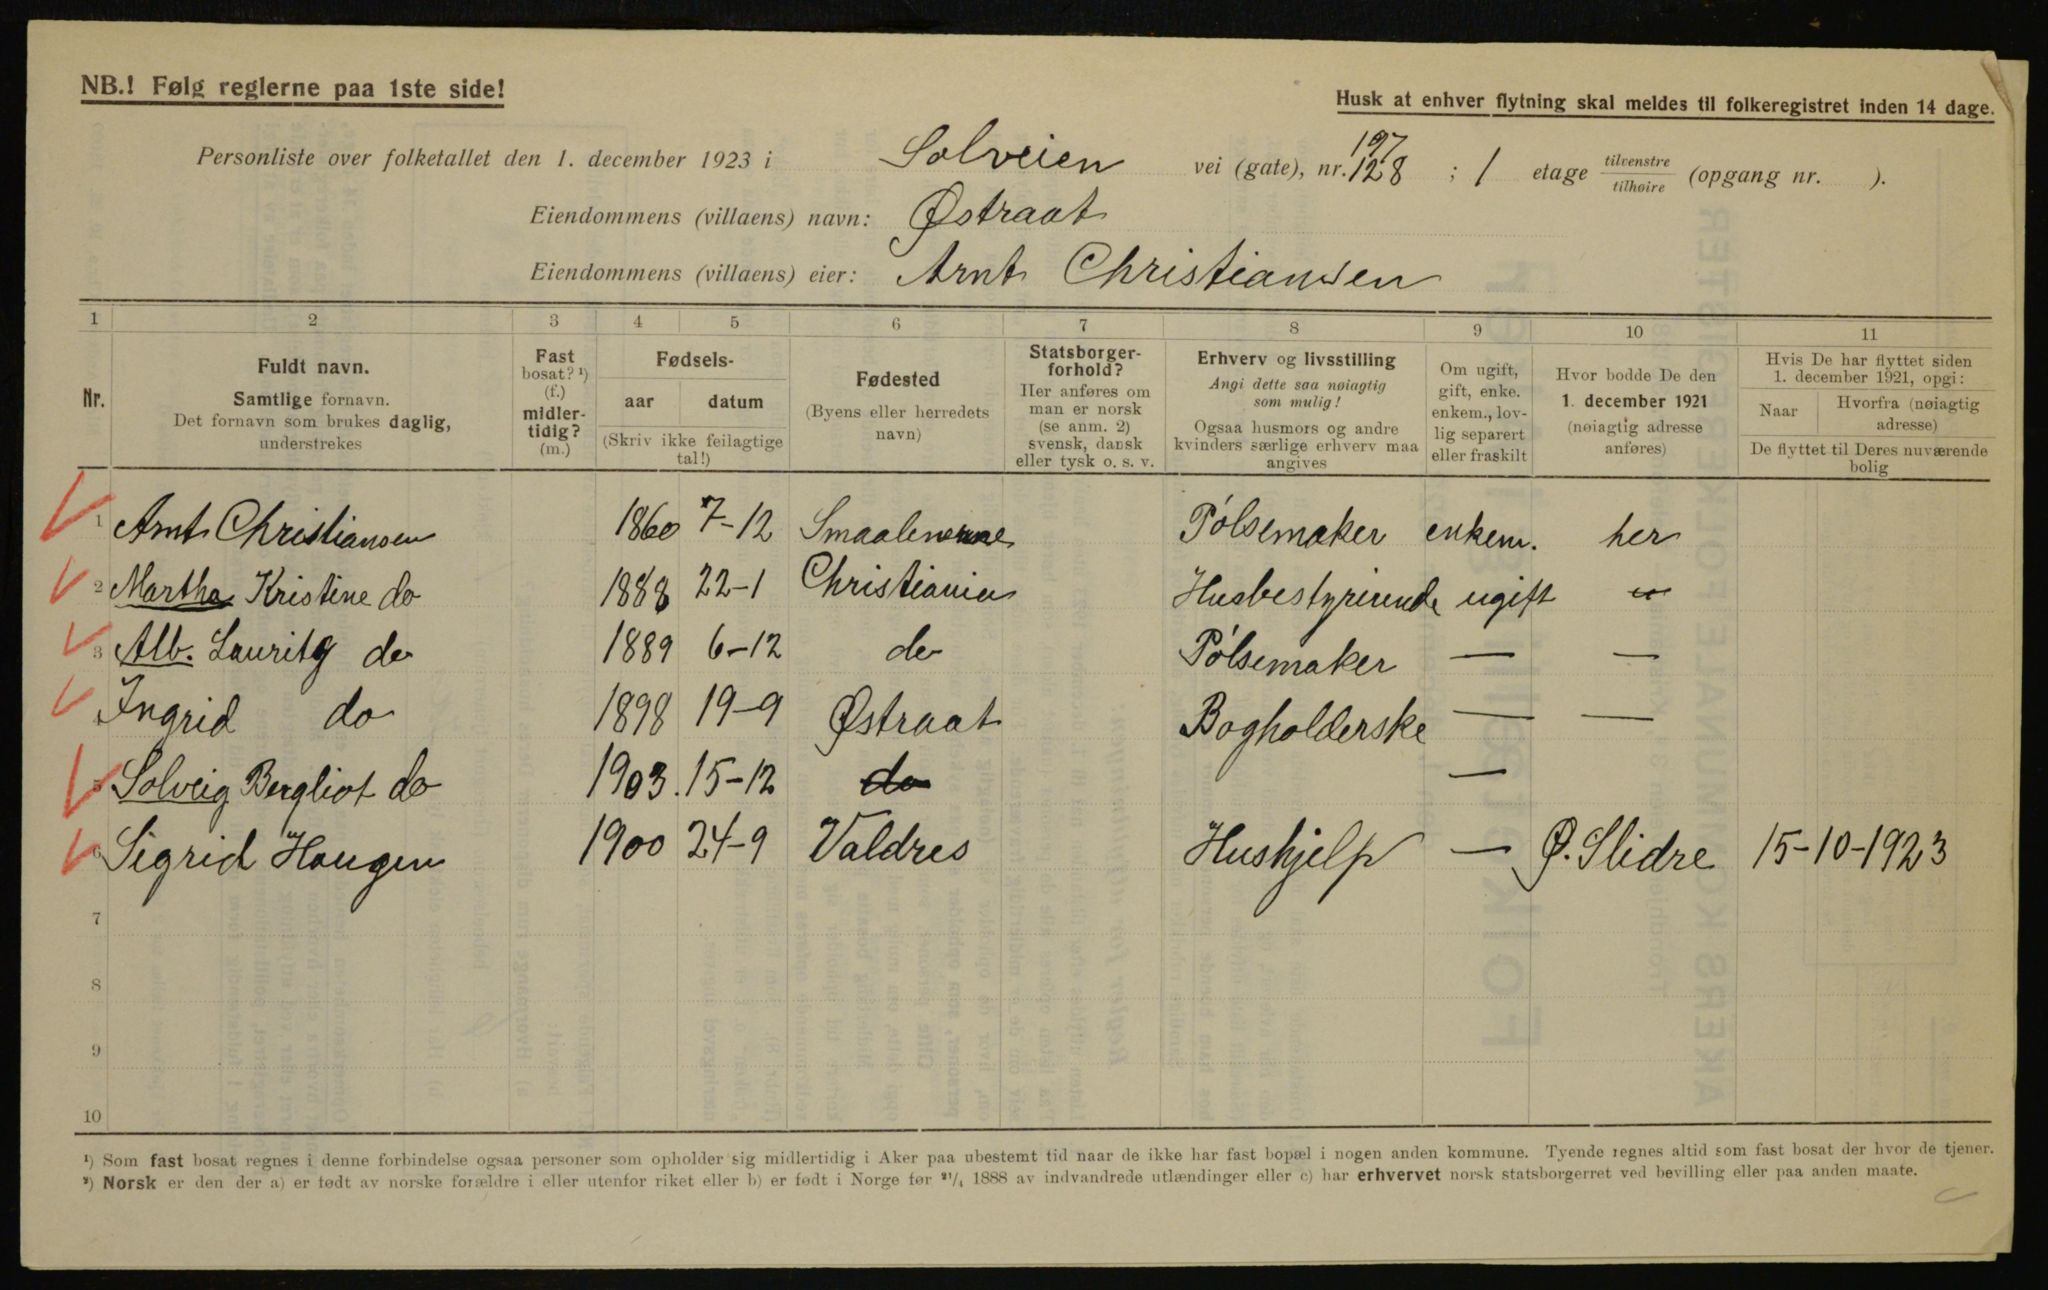 NB.! Følg reglerne paa 1ste side!
Husk at enhver flytning skal meldes til folkeregistret inden 14 dage.
197
Personliste over folketallet den 1. december 1923 i Solveien vei (gate), nr. 128 ; 1 etage tilvenstre / tilhøire (opgang nr. ).
Eiendommens (villaens) navn: Østraat
Eiendommens (villaens) eier: Arnt Christiansen
1 2 3 4 5 6 7 8 9 10 11
Nr.
Fuldt navn.
Samtlige fornavn.
Det fornavn som brukes daglig,
understrekes
Fast
bosat? ¹)
(f.)
midler-
tidig?
(m.)
Fødsels-
aar datum
(Skriv ikke feilagtige
tal!)
Fødested
(Byens eller herredets
navn)
Statsborger-
forhold?
Her anføres om
man er norsk
(se anm. 2)
svensk, dansk
eller tysk o. s. v.
Erhverv og livsstilling
Angi dette saa nøiagtig
som mulig!
Ogsaa husmors og andre
kvinders særlige erhverv maa
angives
Om ugift,
gift, enke.
enkem., lov-
lig separert
eller fraskilt
Hvor bodde De den
1. december 1921
(nøiagtig adresse
anføres)
Hvis De har flyttet siden
1. december 1921, opgi:
Naar
Hvorfra (nøiagtig
adresse)
De flyttet til Deres nuværende
bolig
1 Arnt Christiansen 1860 7-12 Smaalenene Pølsemaker enkem. her
2 Martha Kristine do 1888 22-1 Christiania Husbestyrerinde ugift
3 Alb. Lauritz do 1889 6-12 do Pølsemaker — —
4 Ingrid do 1898 19-9 Østraat Bogholderske — —
5 Solveig Bergliot do 1903. 15-12 do —
6 Sigrid Haugen 1900 24-9 Valdres Hushjelp — Ø. Slidre 15-10-1923
7
8
9
10
¹) Som fast bosat regnes i denne forbindelse ogsaa personer som opholder sig midlertidig i Aker paa ubestemt tid naar de ikke har fast bopæl i nogen anden kommune. Tyende regnes altid som fast bosat der hvor de tjener.
²) Norsk er den der a) er født av norske forældre i eller utenfor riket eller b) er født i Norge før ²¹/₄ 1888 av indvandrede utlændinger eller c) har erhvervet norsk statsborgerret ved bevilling eller paa anden maate.